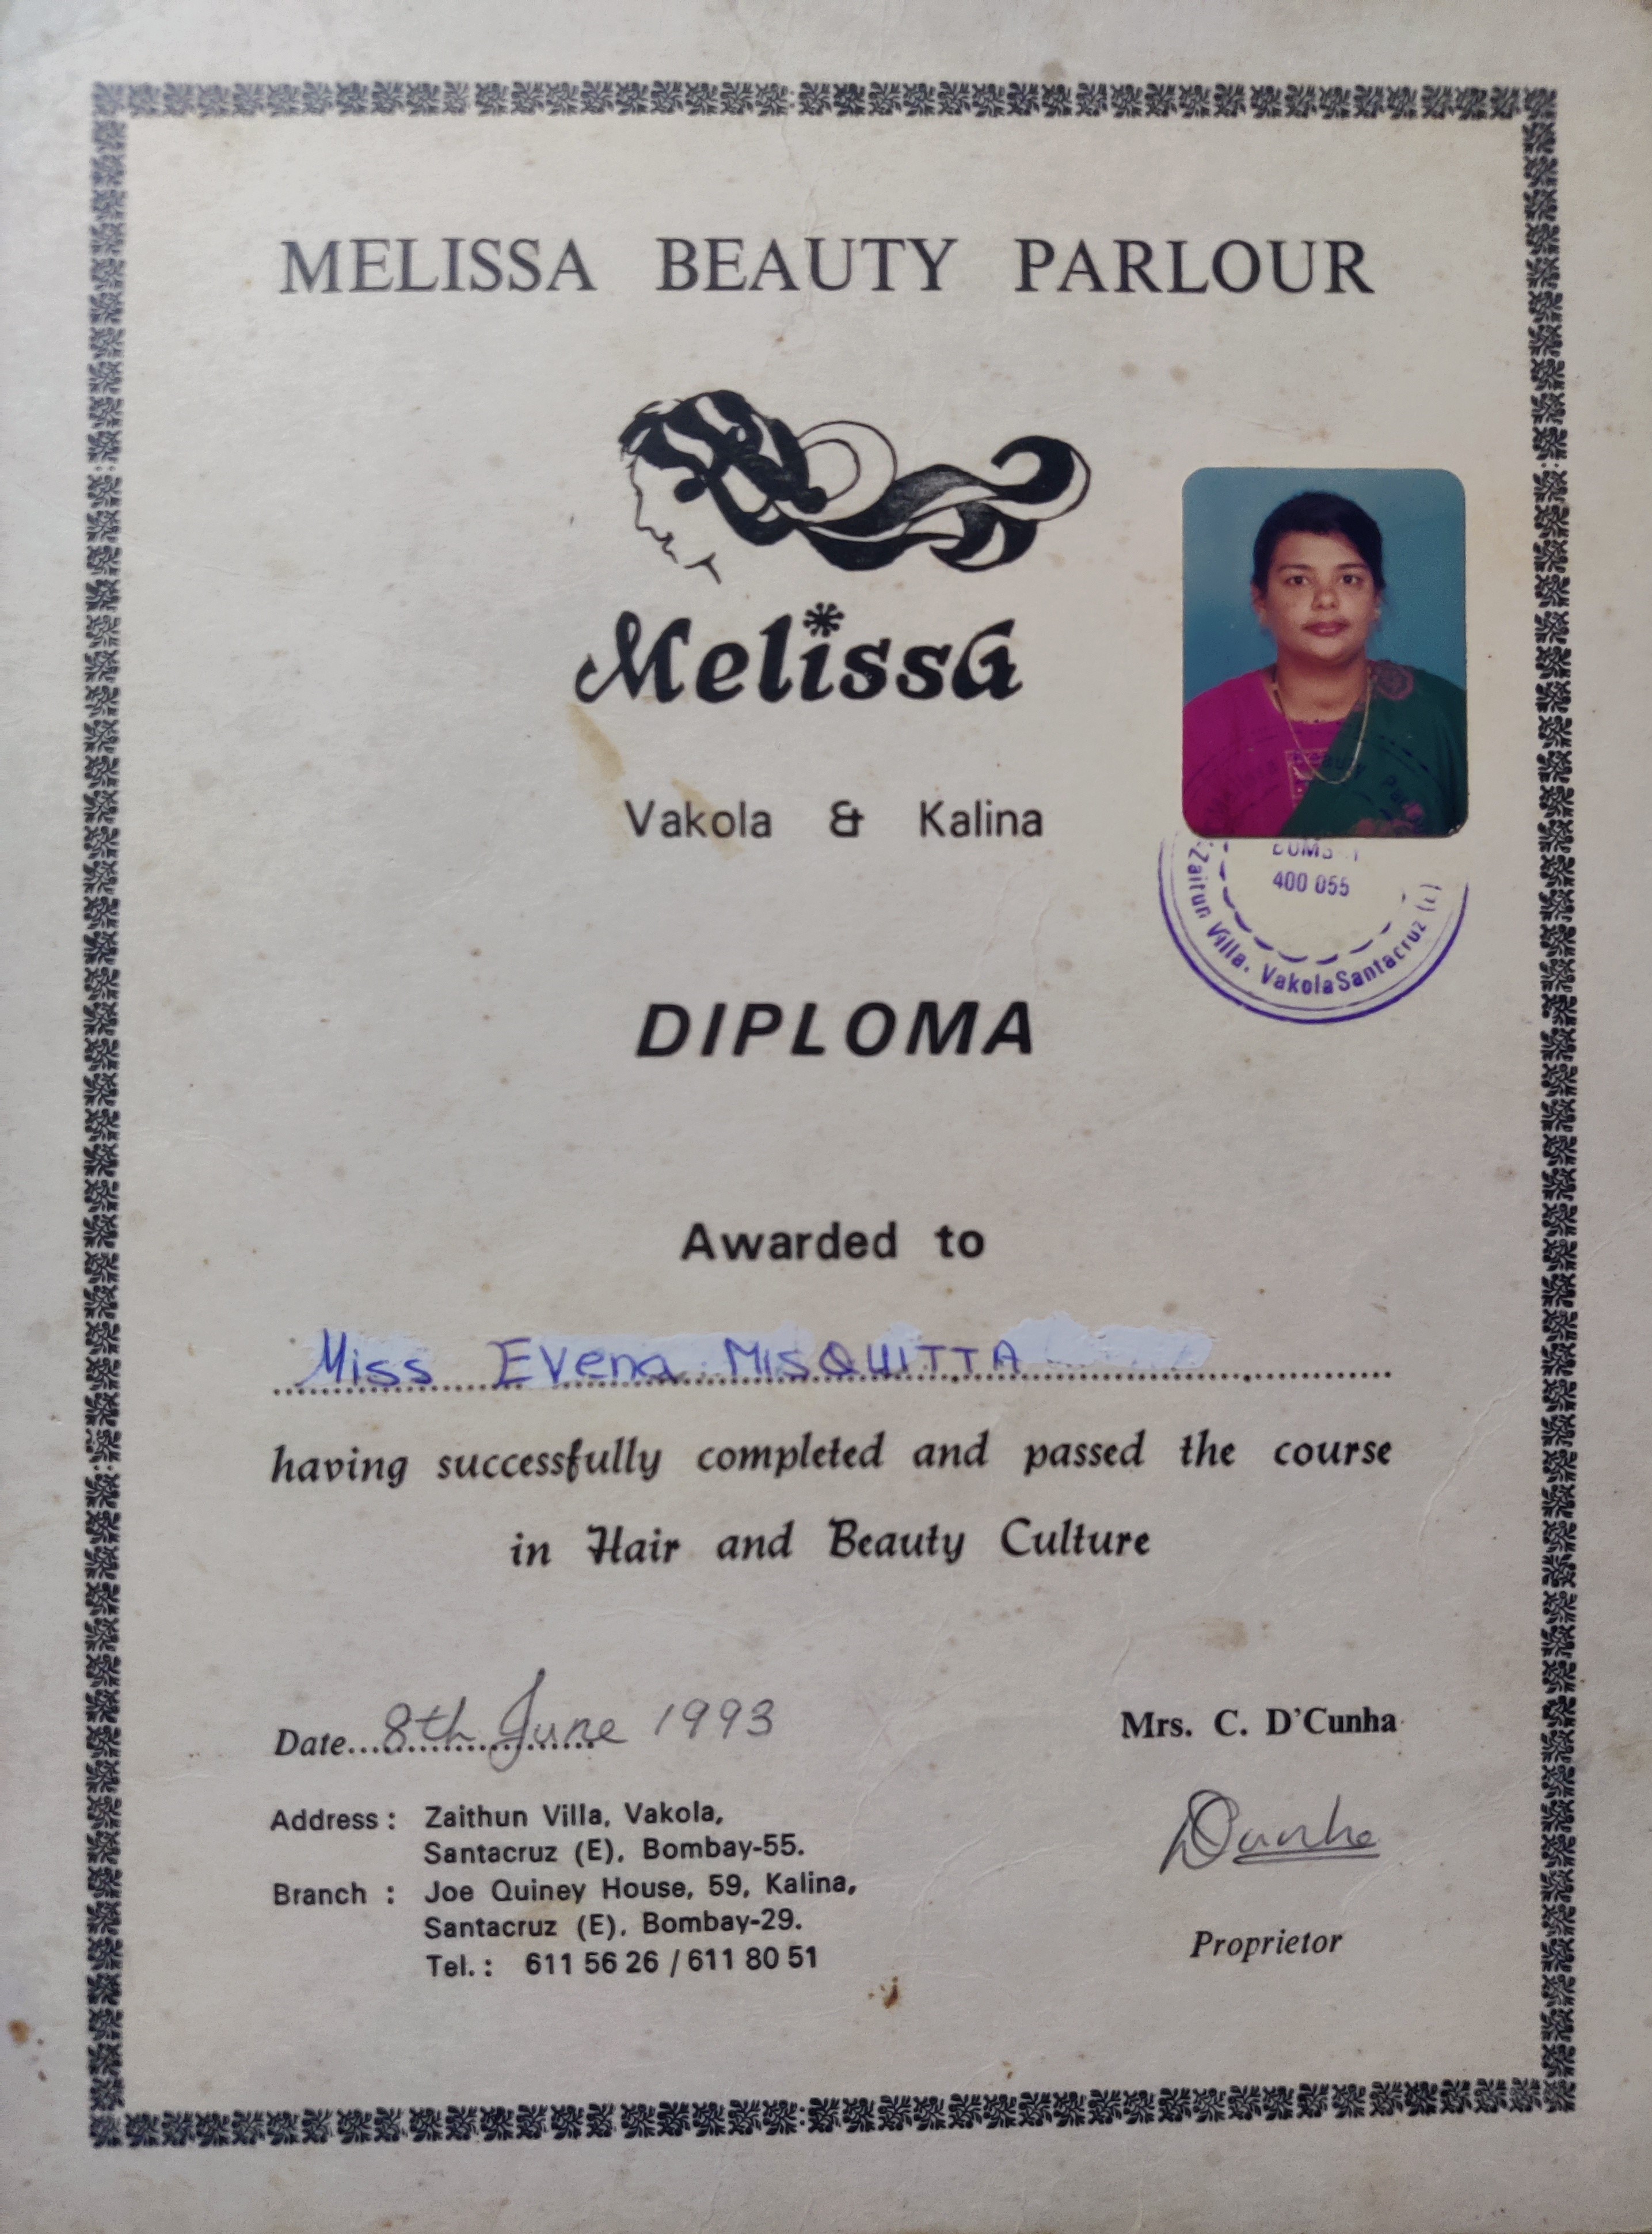 MELISSA BEAUTY PARLOUR
Melissa
Vakola & Kalina
400 055
Zaitun Villa. Vakola Santacruz
DIPLOMA
Awarded to
Miss Evena MISQUITTA
having successfully completed and passed the course
in Hair and Beauty Culture
Date... 8th June 1993
Mrs. C. D'Cunha
Address : Zaithun Villa, Vakola,
Santacruz (E), Bombay-55.
Branch : Joe Quiney House, 59, Kalina,
Santacruz (E), Bombay-29.
Tel. : 611 56 26 / 611 80 51
DCunha
Proprietor